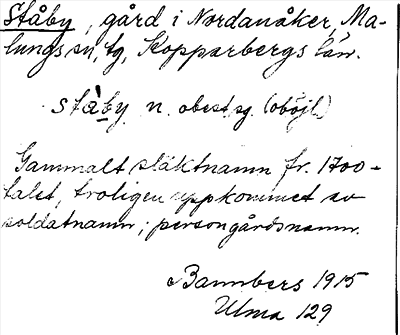 Ståby, gård i Nordanåker, Ma-
lungs sn, tg, Kopparbergs län.
ståby n. obest. sg. (oböjl.)
Gammalt släktnamn fr. 1700-
talet, troligen uppkommet av
soldatnamn; persongårdsnamn.
Bannbers 1915
Ulma 129